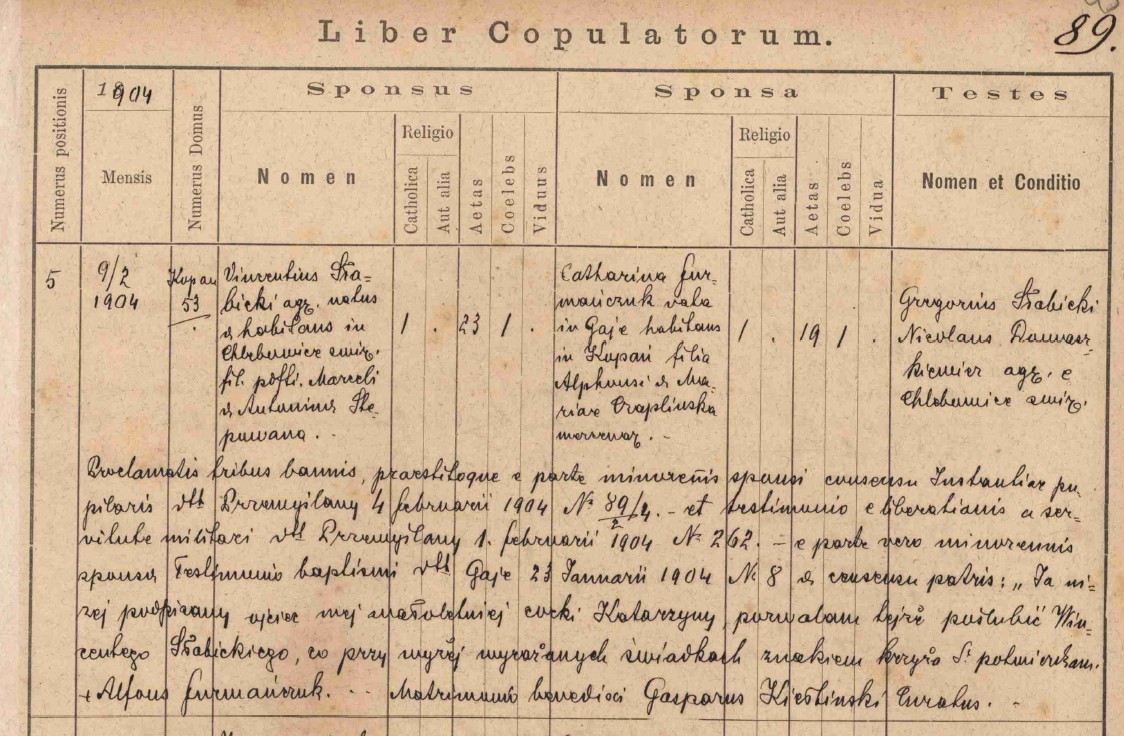 Liber Copulatorum.
89.
Numerus positionis
1904
Mensis
Numerus Domus
Sponsus
Nomen
Religio
Catholica
Aut alia
Aetas
Coelebs
Viduus
Sponsa
Nomen
Religio
Catholica
Aut alia
Aetas
Coelebs
Vidua
Testes
Nomen et Conditio
5
9/2
1904
Kopan
53
Vincentius Sła=
bicki agr. natus
& habitans in
Chlebowice
fil. Marceli
& Antonina Ste=
powana . -
1 . 23 1 .
Catharina Fur=
mańczuk nata
in Gaje habitans
in Kopań filia
Alphonsi & Ma=
riae Czaplinska
1 . 19 1 .
Gregorius Słabicki
Nicolaus
agr. e
Chlebowice
Proclamatis tribus bannis, praestitoque e parte minorennis sponsi consensu Instantiae pu=
pilaris dtt Przemyślany 4 februarii 1904 № 89/4. - et testimonio e liberationis a ser=
vitute militari dtt Przemyślany 1. februarii 1904 № 262. - e parte vero minorennis
sponsa Testimonio baptismi dtt Gaje 23 Januarii 1904 № 8 & consensu patris: „Ja ni=
żej podpisany ojciec mej małoletniej córki Katarzyny, pozwalam tejże poślubić Win=
centego Słabickiego, co przy wyżej wyrażonych świadkach znakiem krzyża S.
+ Alfons Furmańczuk. - - Matrimonio benedixi Gasparus Curatus. -